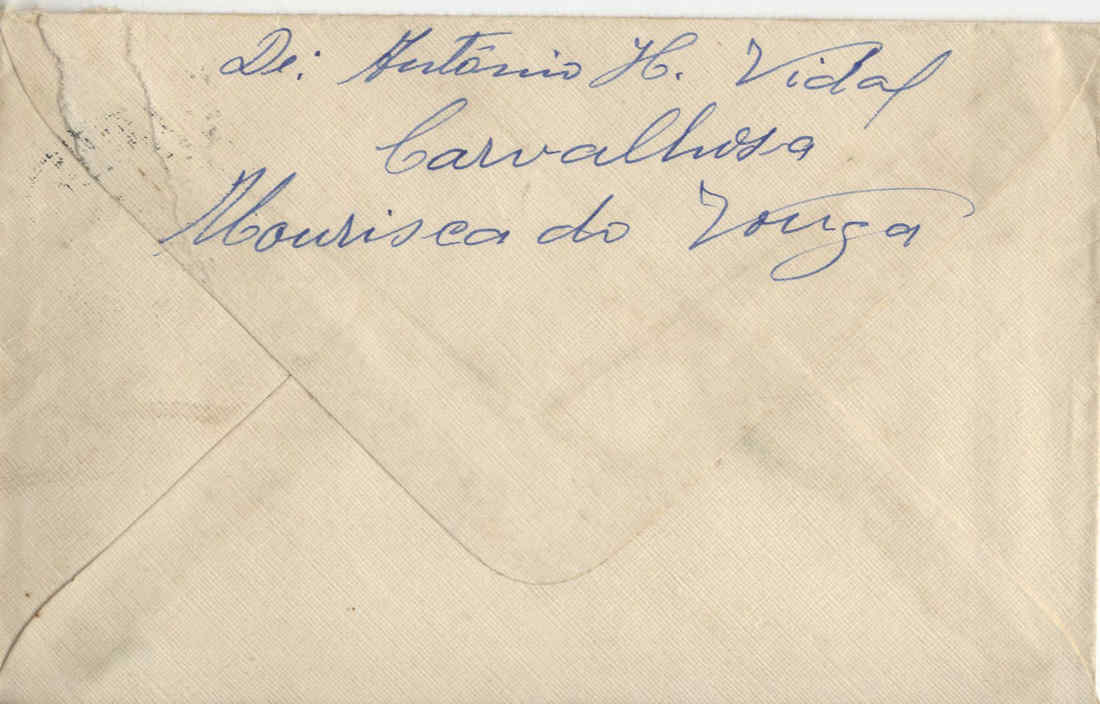 De: António H. Vidal
Carvalhosa
Mourisca do Vouga